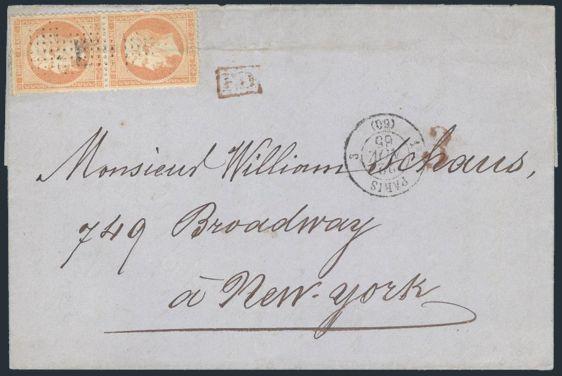 P.D.
3
PARIS
(60)
Monsieur William Schaus,
749 Broadway
à New-York